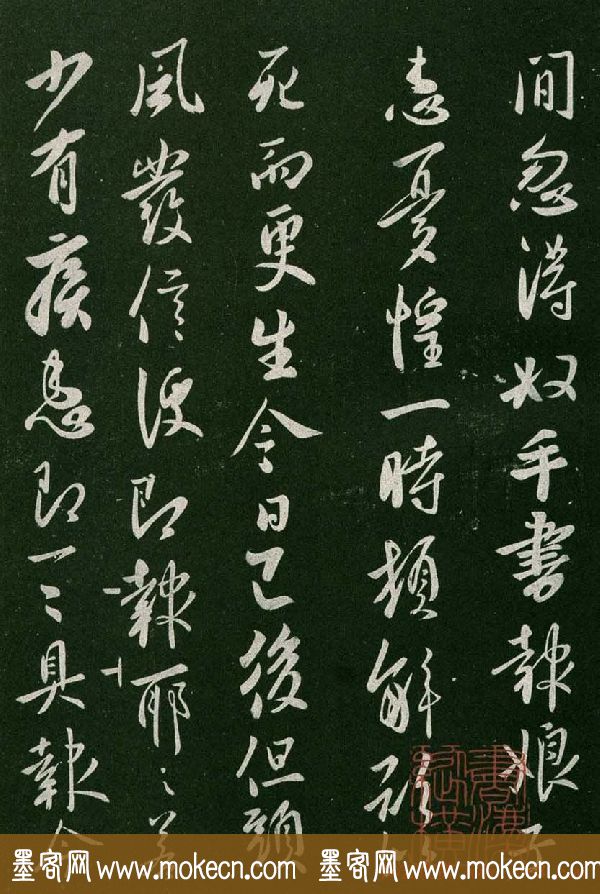 間忽得奴手書報娘子
患憂惶一時頓解欲
死而更生今日已後但頭
風發信便即報耶〻若
少有疾患即一〻具報今
墨客网 www.mokecn.com 墨客网 www.mokecn.com